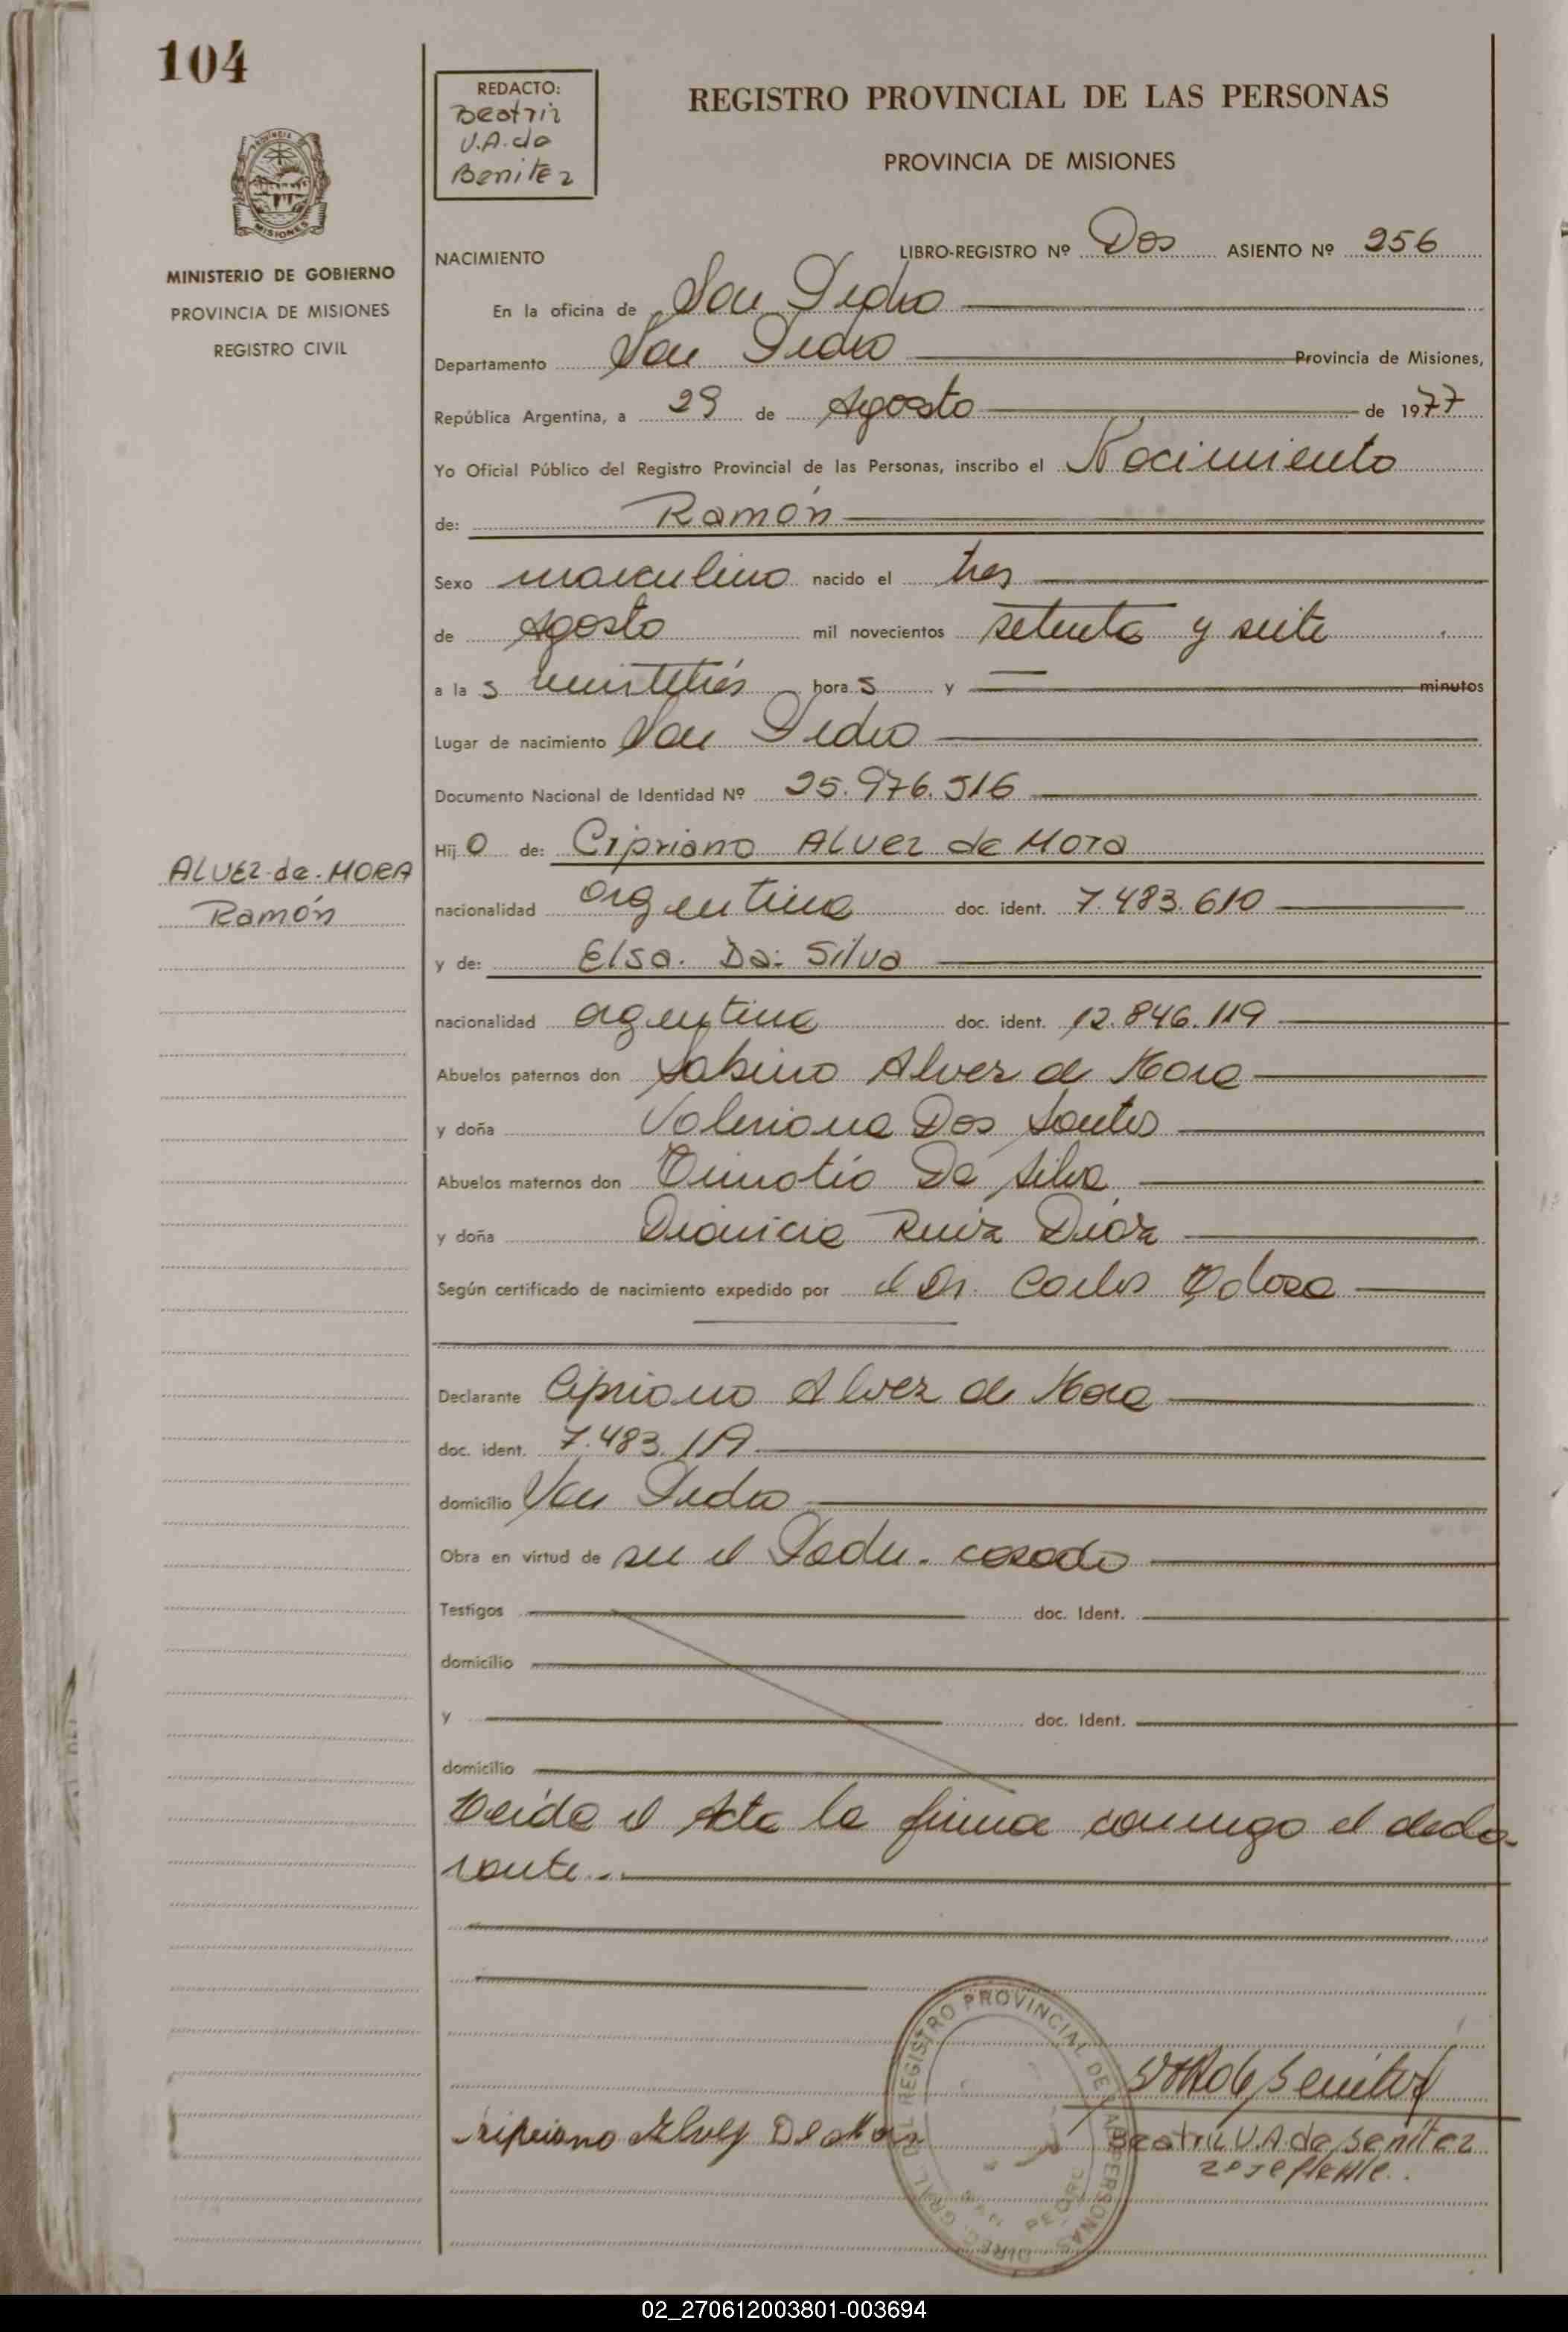 104
REDACTO:
Beatriz
V.A. de
Benitez
REGISTRO PROVINCIAL DE LAS PERSONAS
PROVINCIA DE MISIONES
PROVINCIA
MISIONES
MINISTERIO DE GOBIERNO
PROVINCIA DE MISIONES
REGISTRO CIVIL
NACIMIENTO LIBRO-REGISTRO Nº Dos ASIENTO Nº 256
En la oficina de San Pedro
Departamento San Pedro Provincia de Misiones,
República Argentina, a 29 de Agosto de 1977
Yo Oficial Público del Registro Provincial de las Personas, inscribo el Nacimiento
de: Ramón
Sexo masculino nacido el tres
de Agosto mil novecientos setenta y siete
a la s veintitrés hora s y — minutos
Lugar de nacimiento San Pedro
Documento Nacional de Identidad Nº 25.976.516
Hij o de: Cipriano ALVEZ de MORA
ALVEZ de MORA
Ramón
nacionalidad argentina doc. ident. 7.483.610
y de: Elsa Da Silva
nacionalidad argentina doc. ident. 12.846.119
Abuelos paternos don Sabino Alvez de Mora
y doña Valeriana Dos Santos
Abuelos maternos don Timotio Da Silva
y doña Dionicia Ruiz Diaz
Según certificado de nacimiento expedido por el Dr. Carlos
Declarante Cipriano Alvez de Mora
doc. ident. 7.483.
domicilio San Pedro
Obra en virtud de ser el Padre. casado
Testigos doc. Ident.
domicilio
y doc. Ident.
domicilio
Leída el Acta la firma conmigo el decla-
rante..
REGISTRO PROVINCIAL DE LAS PERSONAS
DIREC. GRAL. DEL
SAN PEDRO
Cipriano Alvez De Mora
Beatriz V.A de Benitez
02_270612003801-003694